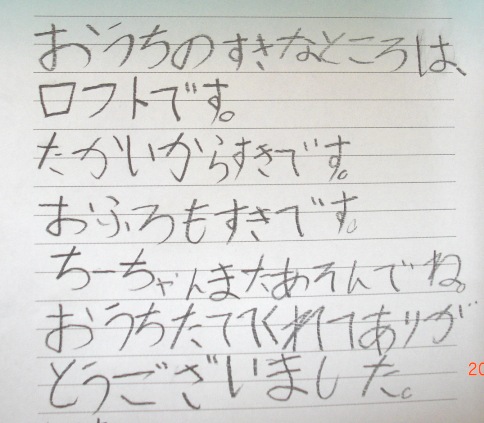 おうちのすきなところは、
ロフトです。
たかいからすきです。
おふろもすきです。
ちーちゃんまたあそんでね。
おうちたててくれてありが
とうございました。
20